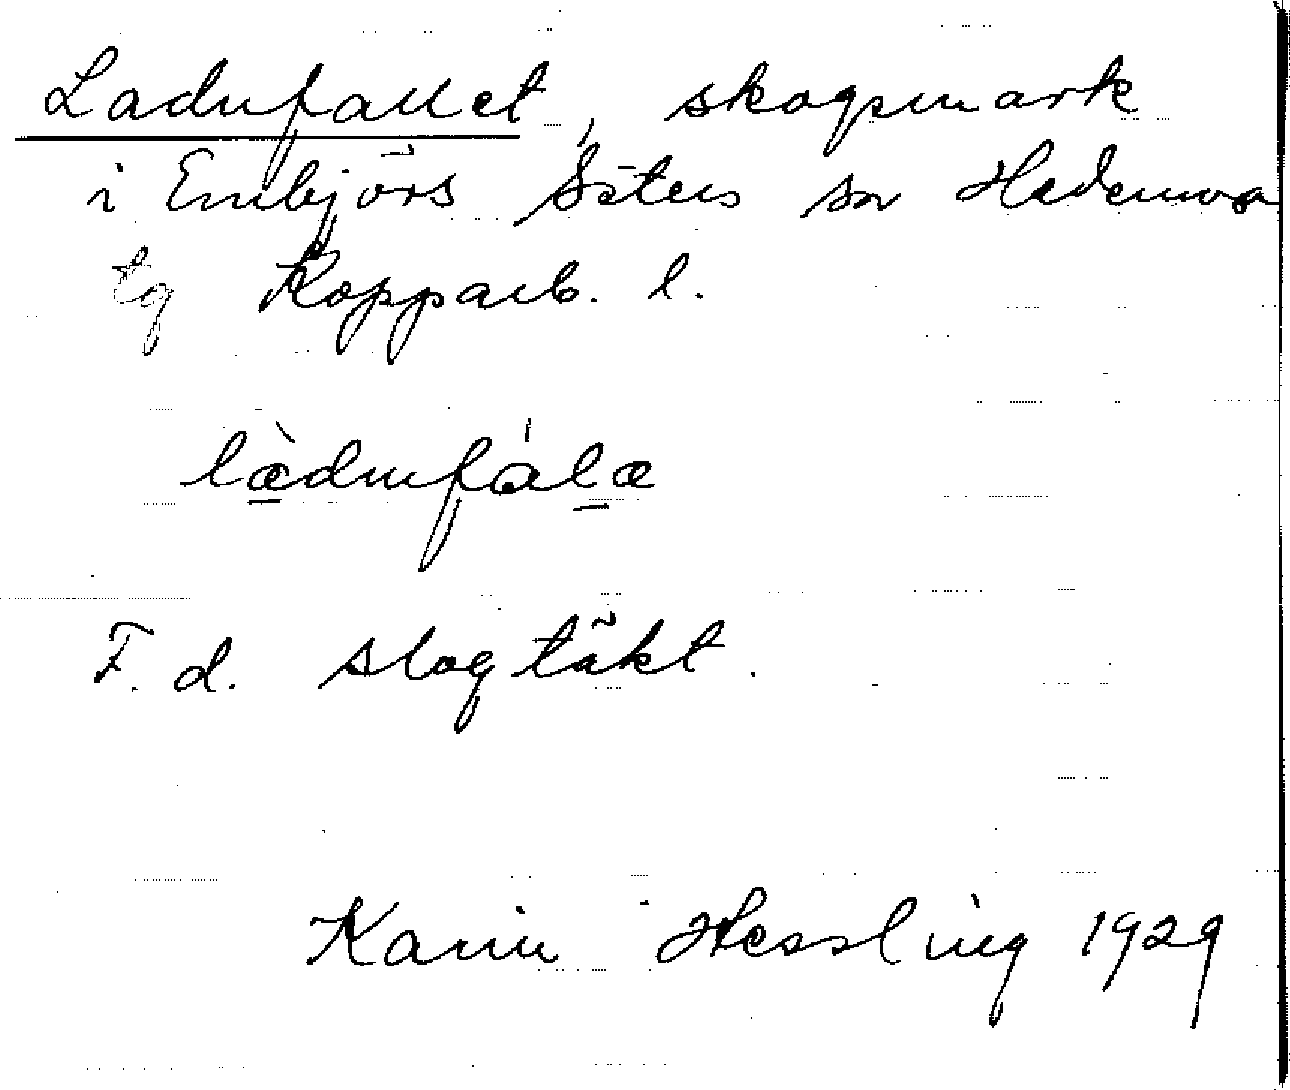 Ladufallet, skogsmark
i Embjörs Säters sn Hedemora
tg Kopparb. l.
lædufàlæ
F. d. slogtäkt.
Karin Hessling 1929